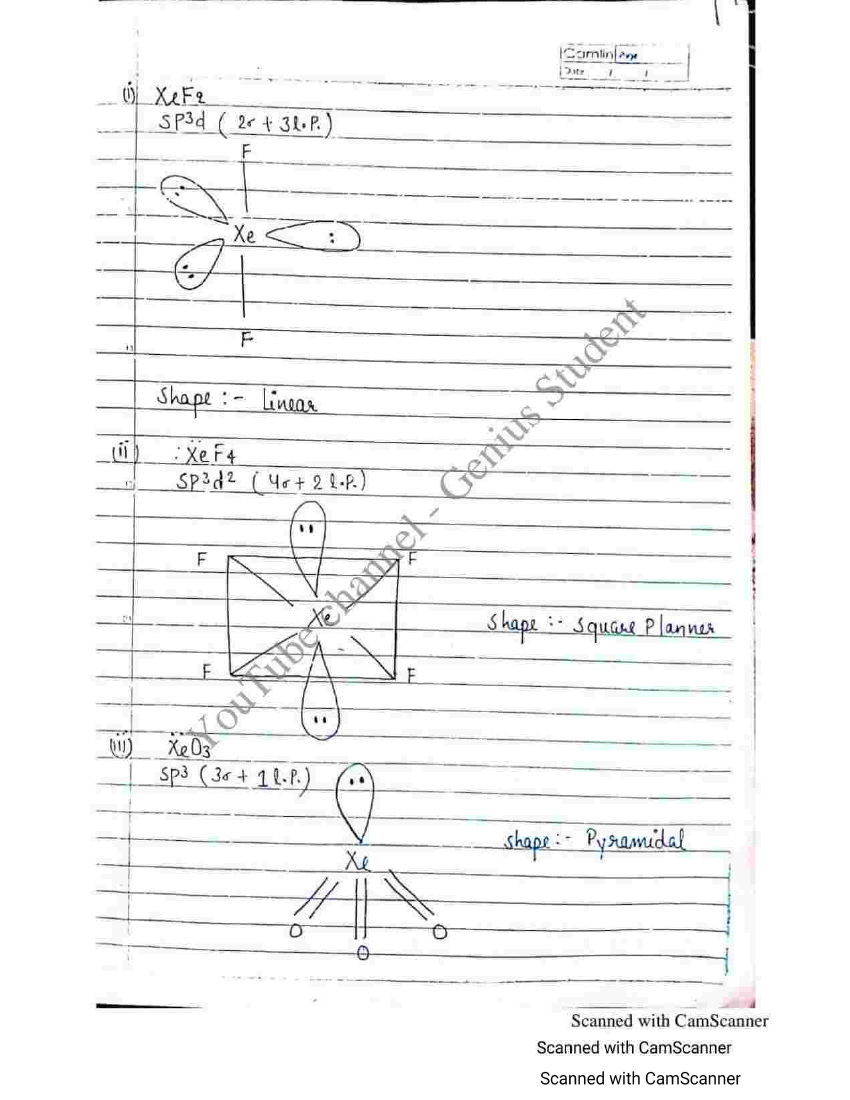 Camlin Page
Date / /
(i) XeF2
SP3d ( 2σ + 3l.P.)
F
Xe
F
Shape :- Linear
(ii) :XeF4
SP3d2 ( 4σ + 2 l.P.)
F F
Xe
Shape :- Square Planner
F F
(iii) XeO3
SP3 (3σ + 1 l.P.)
Shape :- Pyramidal
Xe
O O
O
YouTube channel - Genius Student
Scanned with CamScanner
Scanned with CamScanner
Scanned with CamScanner